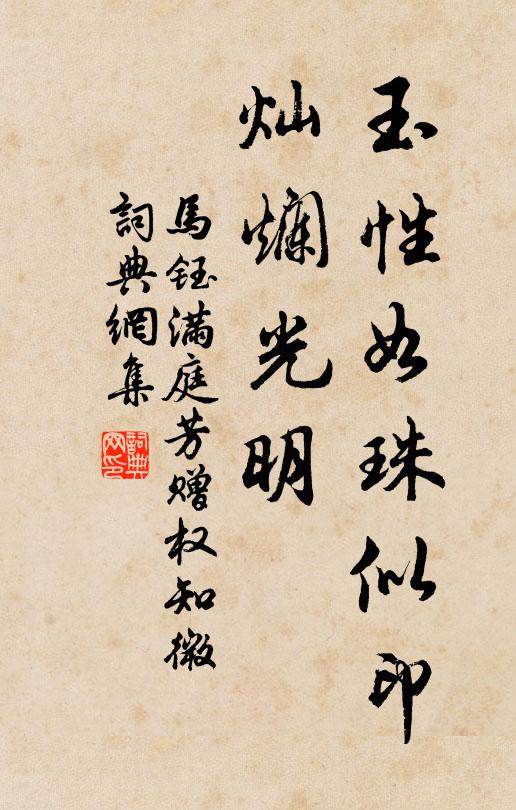 玉性如珠似印
灿爛光明
馬鈺满庭芳赠权知微
詞典網集
詞典
网印